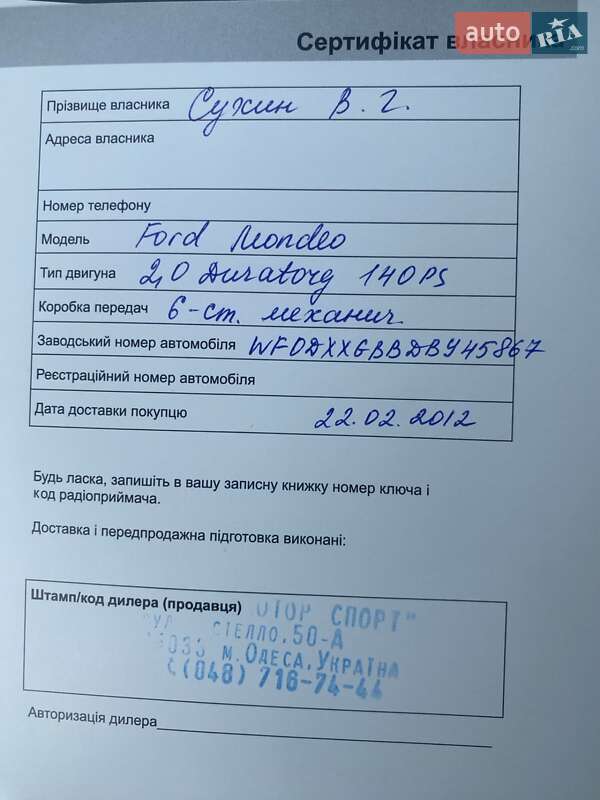 auto RIA .com
Сертифікат власника
Прізвище власника Сухин В. Г.
Адреса власника
Номер телефону
Модель Ford Mondeo
Тип двигуна 2,0 Duratorg 140PS
Коробка передач 6-ст. механич.
Заводський номер автомобіля WF0DXXGBBDBY45867
Реєстраційний номер автомобіля
Дата доставки покупцю 22.02.2012
Будь ласка, запишіть в вашу записну книжку номер ключа і
код радіоприймача.
Доставка і передпродажна підготовка виконані:
Штамп/код дилера (продавця) ОТОР СПОРТ"
50-А
м. ОДЕСА, УКРАЇНА
(048) 716-74-44
Авторизація дилера